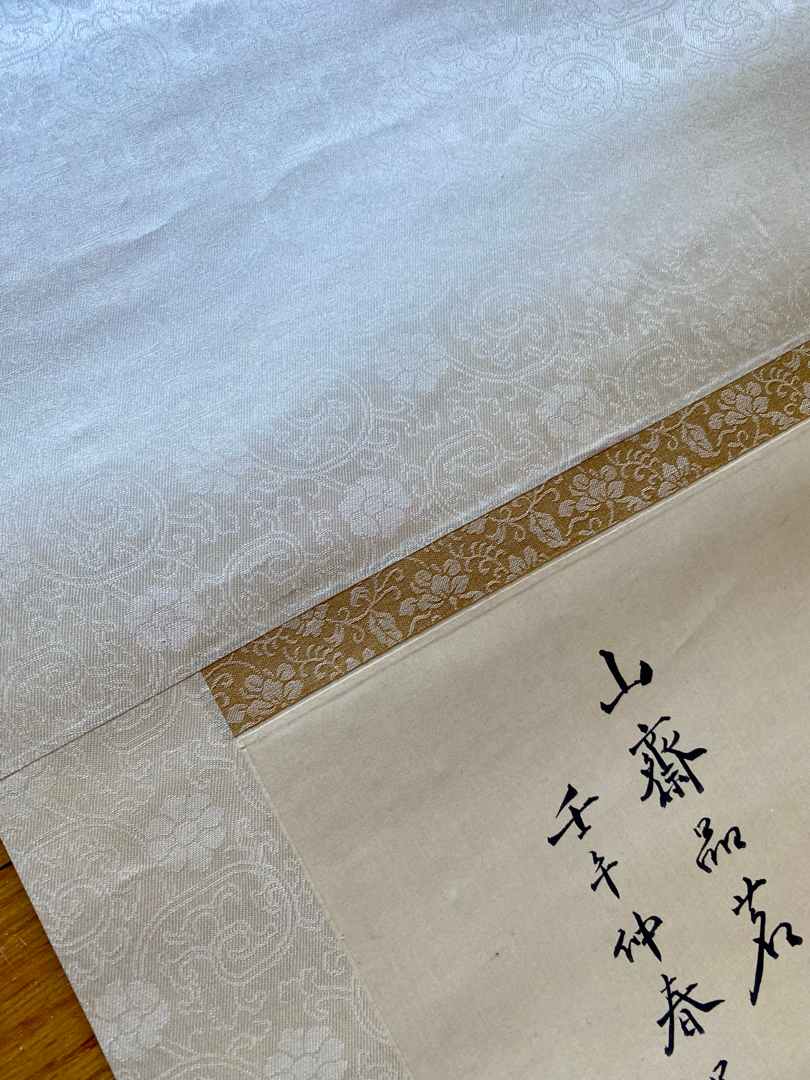 山齋品茗
壬午仲春